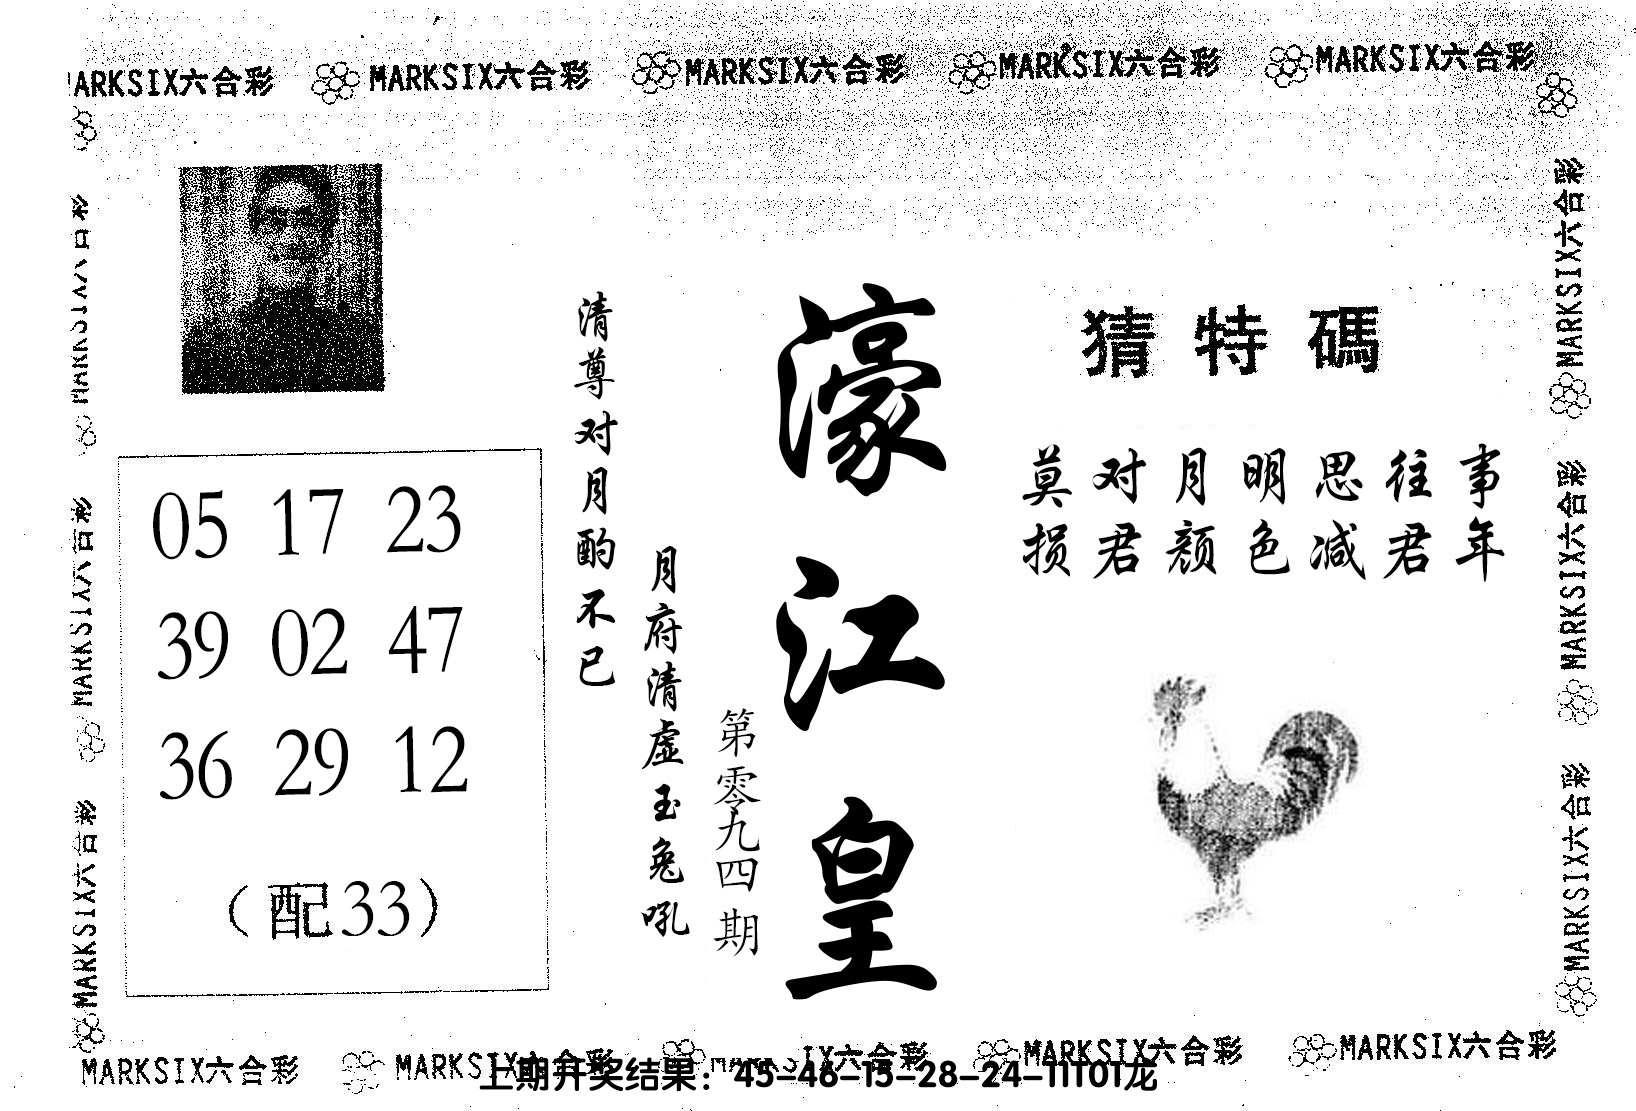 MARKSIX六合彩 MARKSIX六合彩 MARKSIX六合彩 MARKSIX六合彩
猜特碼
莫对月明思往事
损君颜色减君年
濠江皇
第零九四期
清尊对月酌不已
月府清虚玉兔吼
05 17 23
39 02 47
36 29 12
（配33）
MARKSIX六合彩
MARKSIX六合彩
MARKSIX六合彩
MARKSIX六合彩
MARKSIX六合彩 MARKSIX六合彩 MARKSIX六合彩 MARKSIX六合彩
上期开奖结果：45-46-15-28-24-11T01龙